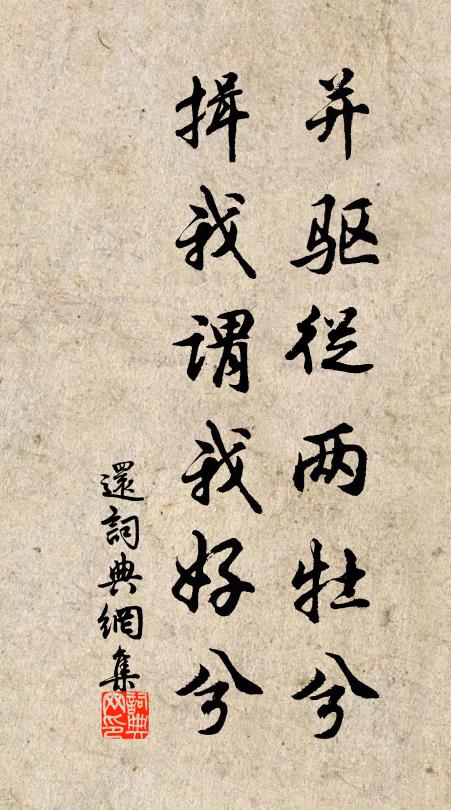 并驱從两牡兮
揖我谓我好兮
還詞典網集
詞典
网印